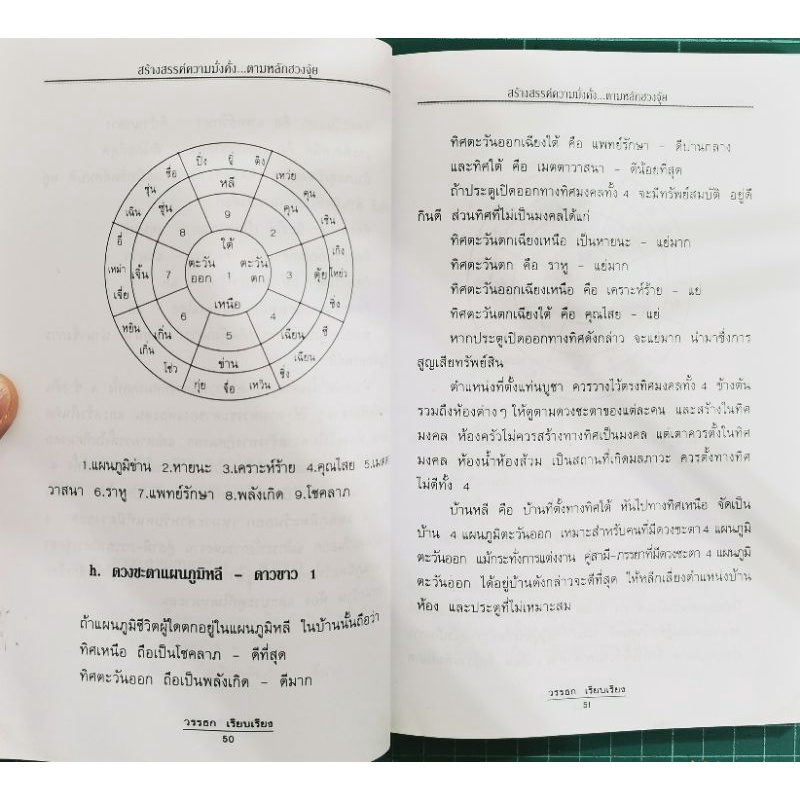 สร้างสรรค์ความมั่งคั่ง...ตามหลักฮวงจุ้ย
ปิ่ง อู่ ติง
ซื่อ หลี เหว่ย
ซุ่น คุน
เฉิน ซุ่น 9 คุน เซิน
8 2
อี่ ใต้ เกิง
เหม่า เจิ้น 7 ตะวันออก 1 ตะวันตก 3 ตุ้ย โหย่ว
เจี่ย เหนือ ซิง
6 4
หยิน 5 ซี
เกิ่น เกิ่น เฉียน เฉียน
โฉ่ว ข่าน ซิง
กุ่ย จื่อ เหวิน
1.แผนภูมิข่าน 2.หายนะ 3.เคราะห์ร้าย 4.คุณไสย 5.เมตตา
วาสนา 6.ราหู 7.แพทย์รักษา 8.พลังเกิด 9.โชคลาภ
ห. ดวงชะตาแผนภูมิหลี – ดาวขาว 1
ถ้าแผนภูมิชีวิตผู้ใดตกอยู่ในแผนภูมิหลี ในบ้านนั้นถือว่า
ทิศเหนือ ถือเป็นโชคลาภ – ดีที่สุด
ทิศตะวันออก ถือเป็นพลังเกิด – ดีมาก
วรรธก เรียบเรียง
50
สร้างสรรค์ความมั่งคั่ง...ตามหลักฮวงจุ้ย
ทิศตะวันออกเฉียงใต้ คือ แพทย์รักษา – ดีปานกลาง
และทิศใต้ คือ เมตตาวาสนา – ดีน้อยที่สุด
ถ้าประตูเปิดออกทางทิศมงคลทั้ง 4 จะมีทรัพย์สมบัติ อยู่ดี
กินดี ส่วนทิศที่ไม่เป็นมงคลได้แก่
ทิศตะวันตกเฉียงเหนือ เป็นหายนะ – แย่มาก
ทิศตะวันตก คือ ราหู – แย่มาก
ทิศตะวันออกเฉียงเหนือ คือ เคราะห์ร้าย – แย่
ทิศตะวันตกเฉียงใต้ คือ คุณไสย – แย่
หากประตูเปิดออกทางทิศดังกล่าว จะแย่มาก นำมาซึ่งการ
สูญเสียทรัพย์สิน
ตำแหน่งที่ตั้งแท่นบูชา ควรวางไว้ตรงทิศมงคลทั้ง 4 ข้างต้น
รวมถึงห้องต่างๆ ให้ดูตามดวงชะตาของแต่ละคน และสร้างในทิศ
มงคล ห้องครัวไม่ควรสร้างทางทิศเป็นมงคล แต่เตาควรตั้งในทิศ
มงคล ห้องน้ำห้องส้วม เป็นสถานที่เกิดมลภาวะ ควรตั้งทางทิศ
ไม่ดีทั้ง 4
บ้านหลี คือ บ้านที่ตั้งทางทิศใต้ หันไปทางทิศเหนือ จัดเป็น
บ้าน 4 แผนภูมิตะวันออก เหมาะสำหรับคนที่มีดวงชะตา 4 แผนภูมิ
ตะวันออก แม้กระทั่งการแต่งงาน คู่สามี-ภรรยาที่มีดวงชะตา 4 แผนภูมิ
ตะวันออก ได้อยู่บ้านดังกล่าวจะดีที่สุด ให้หลีกเลี่ยงตำแหน่งบ้าน
ห้อง และประตูที่ไม่เหมาะสม
วรรธก เรียบเรียง
51